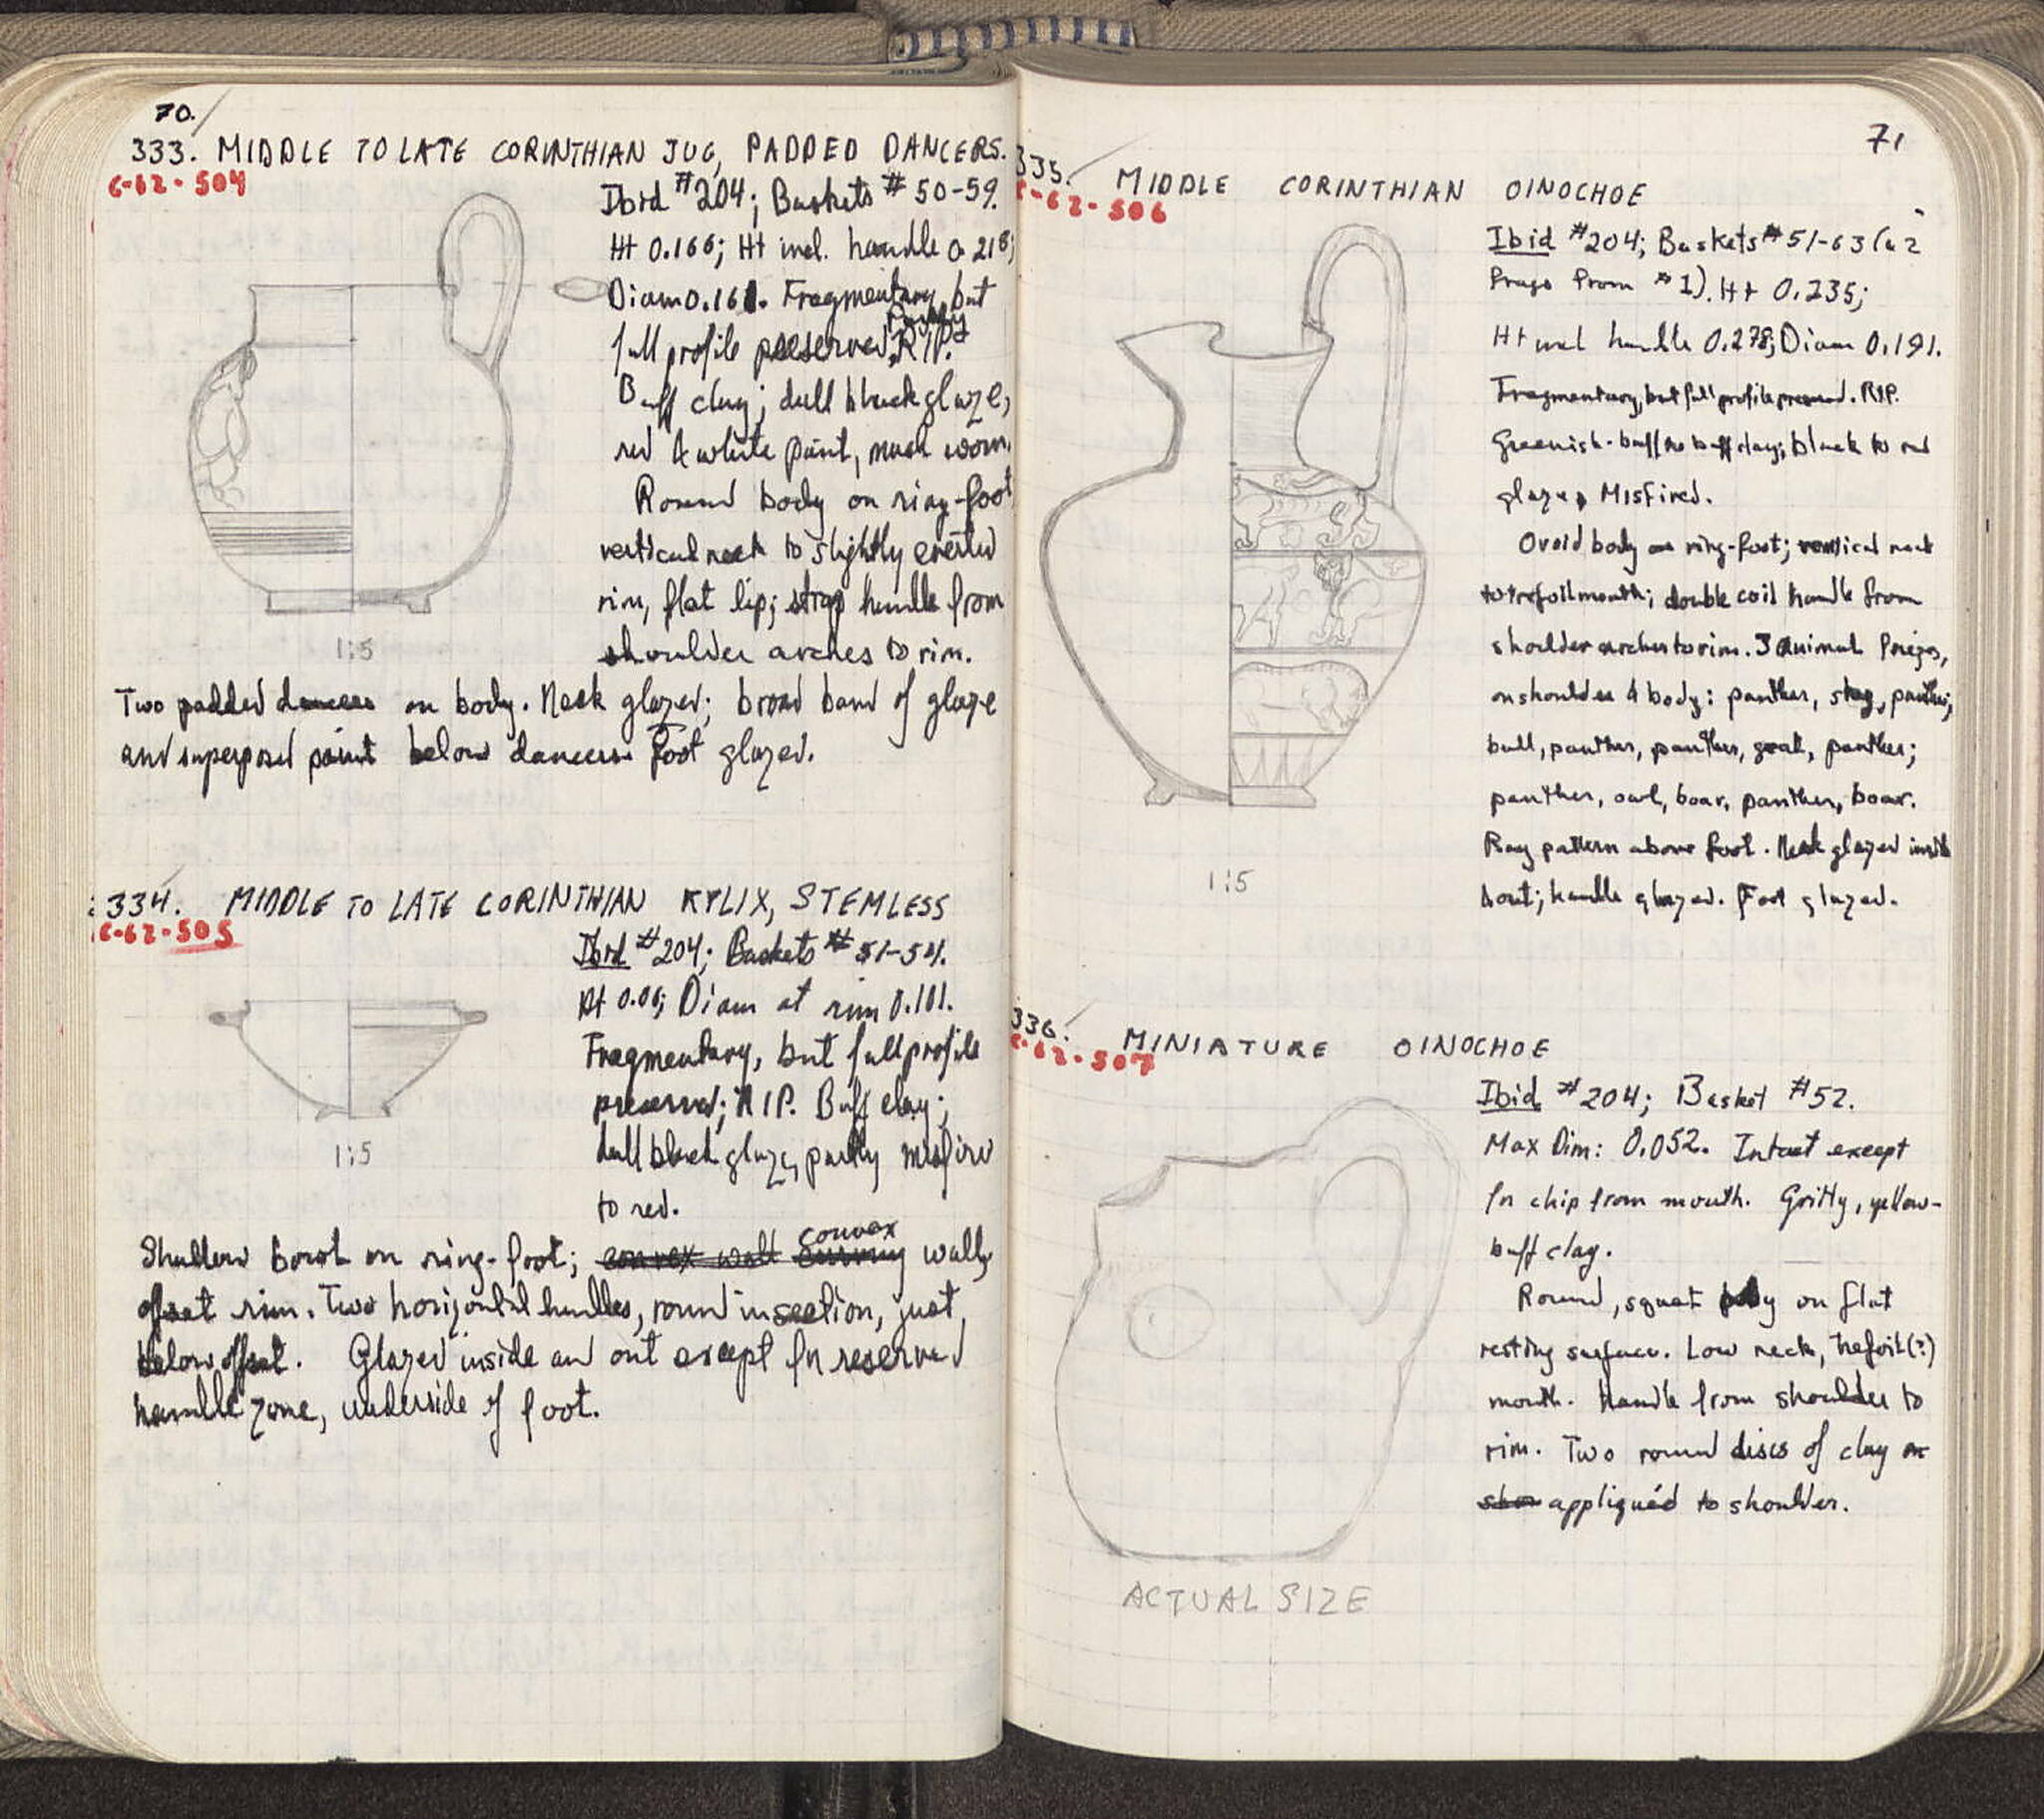 70.
333. MIDDLE TO LATE CORINTHIAN JUG, PADDED DANCERS.
C-62-504
Ibid #204; Baskets #50-59.
Ht 0.166; Ht incl. handle 0.218;
Diam 0.161. Fragmentary, but
full profile preserved, Partly RIP.
Buff clay; dull black glaze,
red & white paint, much worn.
Round body on ring-foot
vertical neck to slightly everted
rim, flat lip; strap handle from
shoulder arches to rim.
1:5
Two padded dancers on body. Neck glazed; broad band of glaze
and superposed paint below dancers. Foot glazed.
334. MIDDLE TO LATE CORINTHIAN KYLIX, STEMLESS
C-62-505
Ibid #204; Baskets #51-54.
Ht 0.06; Diam at rim 0.101.
Fragmentary, but full profile
preserved; RIP. Buff clay;
dull black glaze, partly misfired
to red.
1:5
Shallow bowl on ring-foot; convex wall convex wall,
offset rim. Two horizontal handles, round in section, just
below offset. Glazed inside and out except for reserved
handle zone, underside of foot.
71
335. MIDDLE CORINTHIAN OINOCHOE
C-62-506
Ibid #204; Baskets #51-63 (& 2
frags from #1). Ht 0.235;
Ht incl handle 0.278; Diam 0.191.
Fragmentary, but full profile preserved. RIP.
Greenish-buff to buff clay; black to red
glaze, Misfired.
Ovoid body on ring-foot; vertical neck
to trefoil mouth; double coil handle from
shoulder arches to rim. 3 animal friezes,
on shoulder & body: panther, stag, panther;
bull, panther, panther, goat, panther;
panther, owl, boar, panther, boar.
Ray pattern above foot. Neck glazed inside
& out; handle glazed. Foot glazed.
1:5
336. MINIATURE OINOCHOE
C-62-507
Ibid #204; Basket #52.
Max Dim: 0.052. Intact except
for chip from mouth. Gritty, yellow-
buff clay.
Round, squat body on flat
resting surface. Low neck, trefoil(?)
mouth. Handle from shoulder to
rim. Two round discs of clay on
shou appliquéd to shoulder.
ACTUAL SIZE